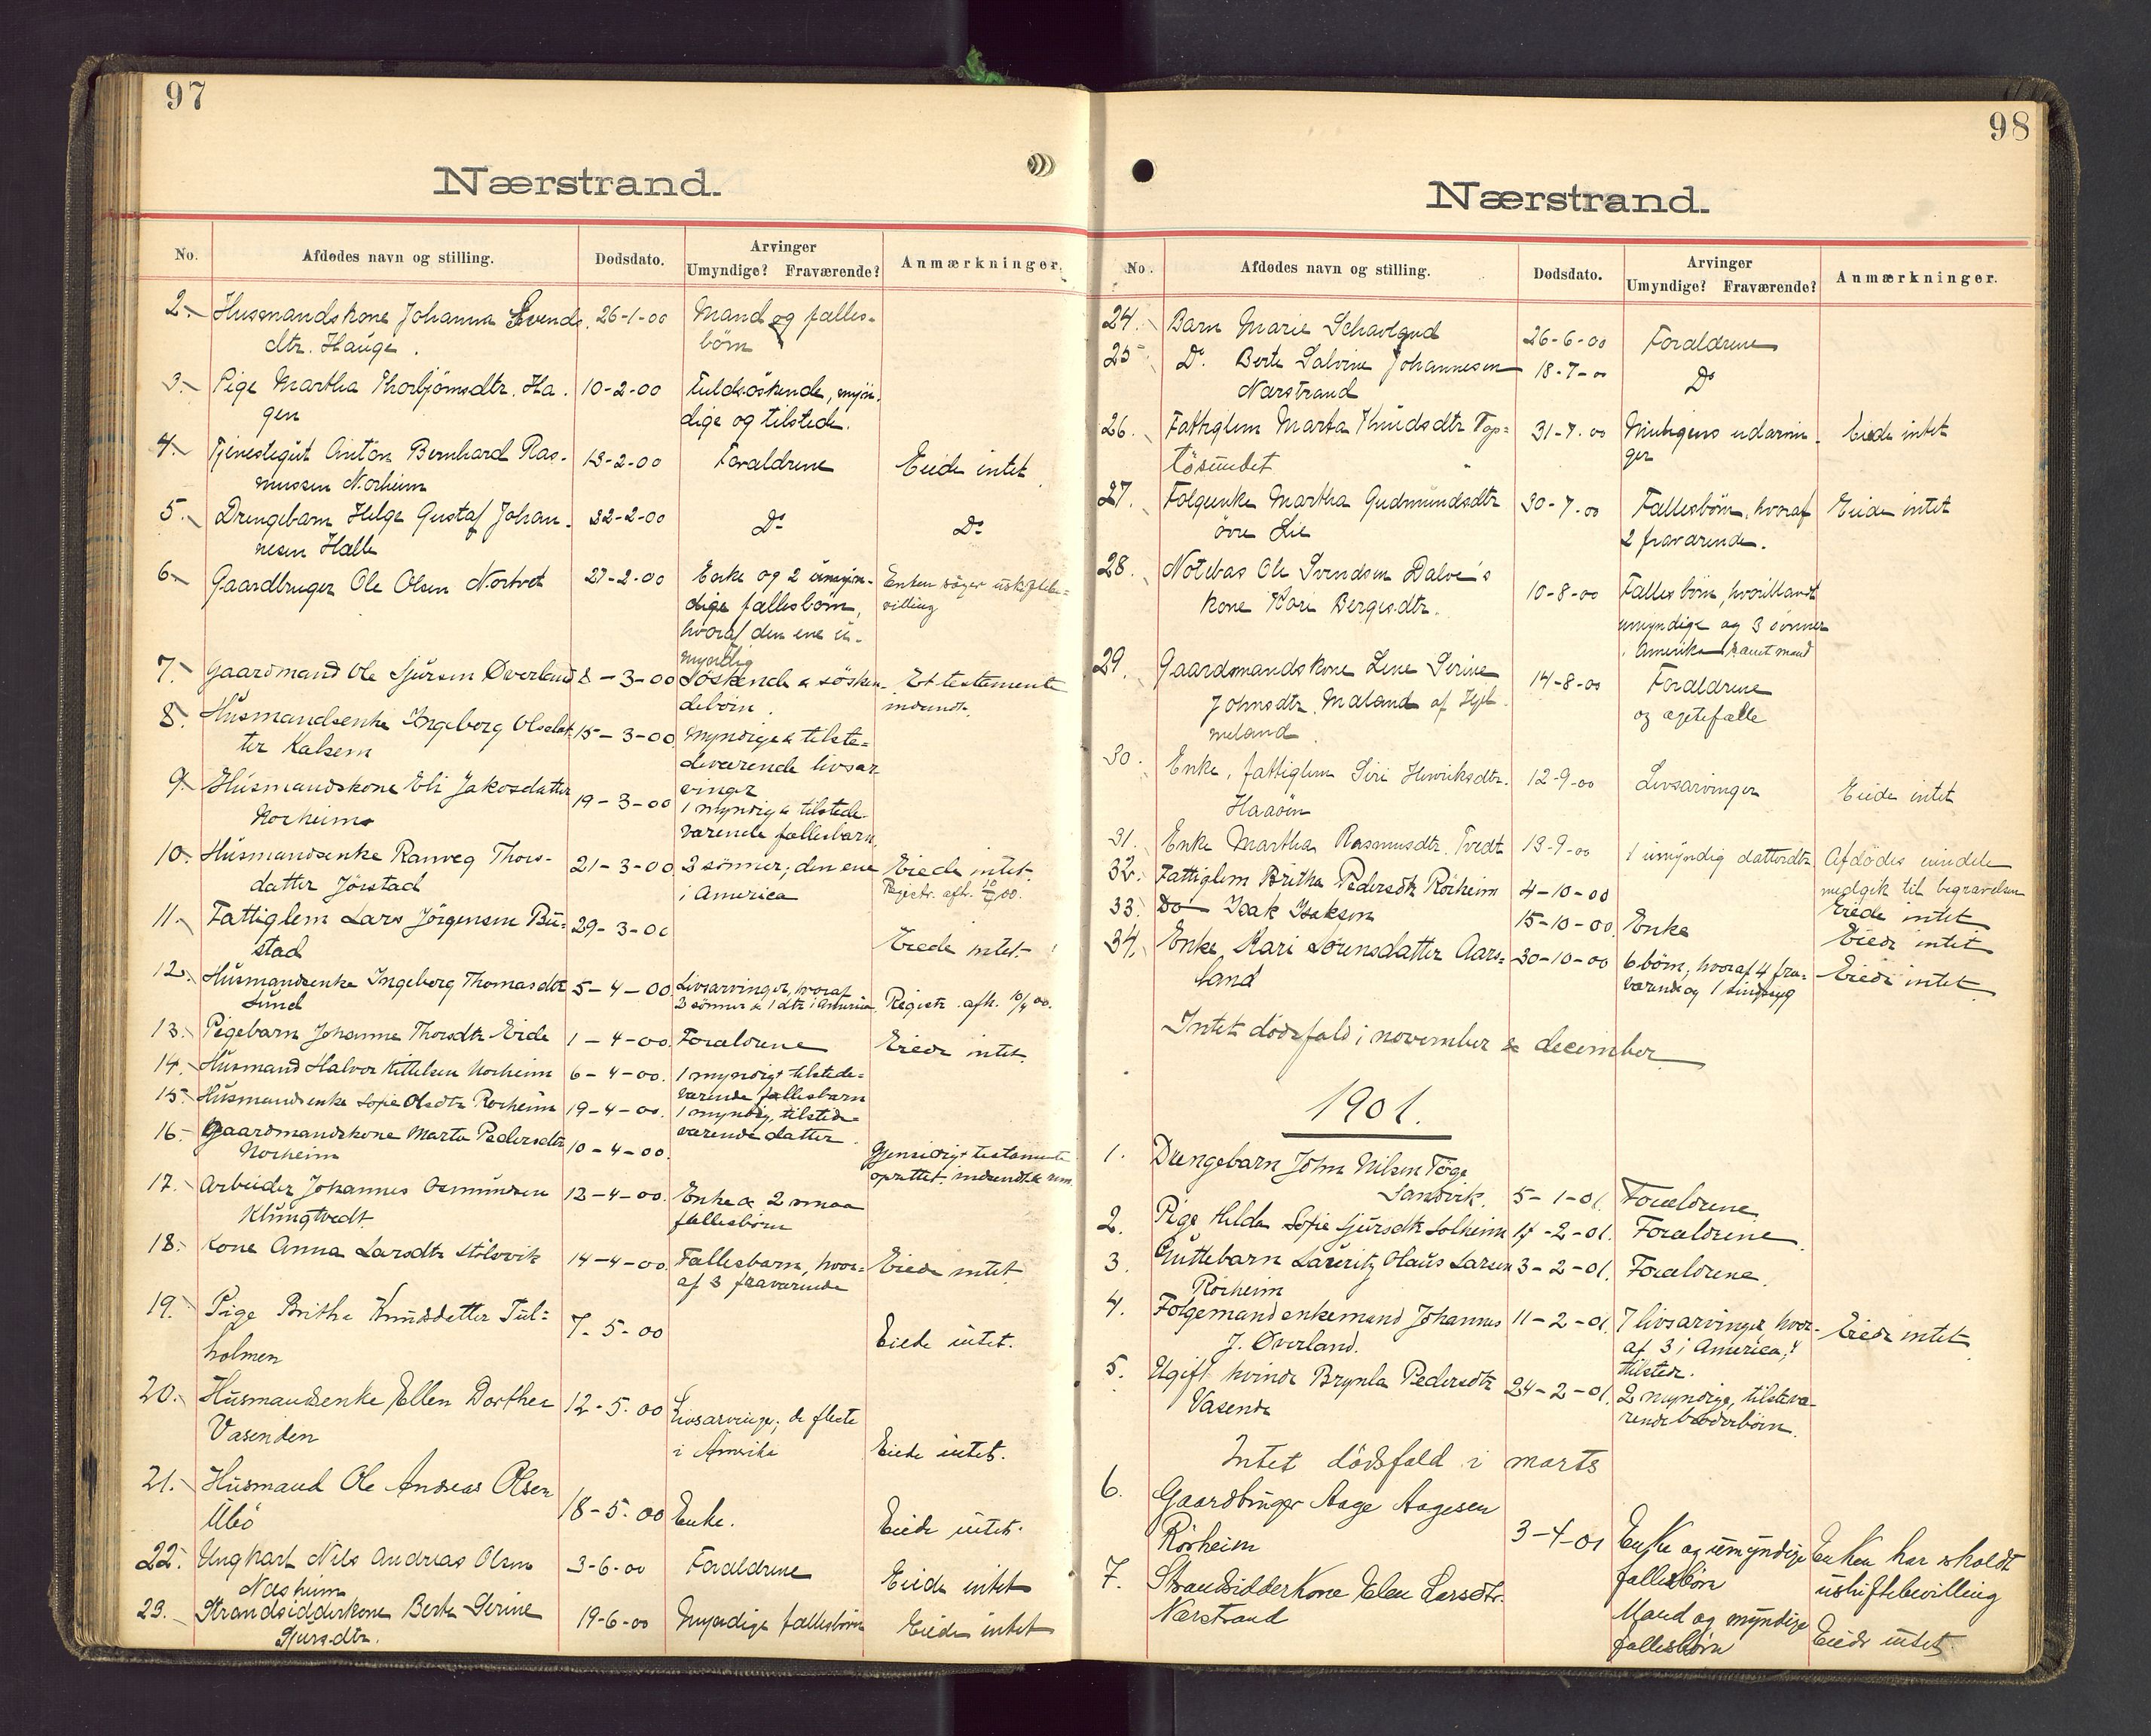 97
Nærstrand.
No. Afdødes navn og stilling. Dødsdato. Arvinger Umyndige? Fraværende? Anmærkninger.
2. Husmandskone Johanna Svends 26-1-00 Mand og fælles-
dtr. Hauge. börn
3. Pige Martha Thorbjörnsdtr. Ha- 10-2-00 Fuldsöskende, myn-
gen dige og tilstede.
4. Tjenestegut Anton Bernhard Ras- 13-2-00 Forældrene Eiede intet
mussen Norheim
5. Drengebarn Helge Gustaf Johan- 22-2-00 Do Do
nesen Halle
6. Gaardbruger Ole Olsen Nortvet 27-2-00 Enke og 2 umyn- Enken söger uskiftebe-
dige fællesbörn, villing
hvoraf den ene u-
myndig
7. Gaardmand Ole Sjursen Øverland 8-3-00 Söskende & sösken- Et testamente
debörn. indsendt.
8. Husmandsenke Ingeborg Olsdat- 15-3-00 Myndige & tilste-
ter Kalsem deværende livsar-
vinger
9. Husmandskone Eli Jakobsdatter 19-3-00 1 myndig & tilstede-
Norheim værende fællesbarn.
10. Husmandsenke Ranveg Thors- 21-3-00 2 sönner; den ene Eiede intet.
datter Jörstad i America Registr. afh. 00.
11. Fattiglem Lars Jörgensen Bu- 29-3-00 Eiede intet.
stad
12. Husmandsenke Ingeborg Thomasdtr 5-4-00 Livsarvinger, hvoraf
Lund 3 sönner & 1 dtr i America Registr. afh. 10/4 00.
13. Pigebarn Johanne Thorsdtr Eide 1-4-00. Forældrene Eiede intet.
14. Husmand Halvor Kittelsen Norheim 6-4-00. 1 myndigt tilstede-
værende fællesbarn
15. Husmandsenke Sofie Olsdtr Rorheim 19-4-00. 1 myndig, tilstede-
værende datter.
16. Gaardmandskone Marta Pedersdtr 10-4-00. Gjensidigt testamente
Norheim oprettet. indsendt
17. Arbeider Johannes Osmundsen 12-4-00. Enke & 2 smaa
Klungtvedt fællesbörn
18. Kone Anna Larsdtr Stölsvik 14-4-00. Fællesbarn, hvor- Eiede intet.
af 3 fraværende
19. Pige Britha Knudsdatter Tul- 7-5-00 Eiede intet.
holmen
20. Husmandsenke Ellen Dorthea 12-5-00 Livsarvinger; de fleste
Vasenden i Amerika Eiede intet.
21. Husmand Ole Andreas Olsen 18-5-00 Enke. Eiede intet.
Ubö
22. Ungkarl Nils Andreas Olsen 3-6-00 Forældrene Eiede intet
Næsheim
23. Strandsidderkone Berte Serine 19-6-00 Myndige fællesbörn Eiede intet
Sjursdtr.
98
Nærstrand.
No. Afdødes navn og stilling. Dødsdato. Arvinger Umyndige? Fraværende? Anmærkninger.
24. Barn Marie 26-6-00 Forældrene
25 Do Berte Salvine Johannesen 18-7-00 Do
Nærstrand
26. Fattiglem Marta Knudsdtr Top- 31-7-00 udarvin- Eiede intet
tösundet ger
27. Folgeenke Martha Gudmundsdtr 30-7-00 Fællesbörn, hvoraf Eiede intet
övre Lie 2 fraværende.
28. Notebas Ole Svendsen Dalve's 10-8-00 Fællesbörn, hvoriblandt
kone Kari Bergesdtr. umyndige og 3 sönner
i Amerika samt mand
29. Gaardmandskone Lene Serine 14-8-00 Forældrene
Johnsdtr. Mæland af Hjel- og ægtefælle
meland.
30. Enke, fattiglem Siri Henriksdtr. 12-9-00 Livsarvinger Eiede intet
Haaöen
31. Enke Martha Rasmusdtr. Tvedt 13-9-00 1 umyndig datterdtr. Afdödes eiendele
medgik til begravelsen
32. Fattiglem Britha Pedersdtr Rörheim 4-10-00 Eiede intet
33. Do Isak Isaksen 15-10-00. Enke Eiede intet
34. Enke Kari Sörensdatter Aars- 30-10-00 6 börn, hvoraf 4 fra- Eiede intet.
land værende og 1 sindssyg
Intet dödsfald i november & december
1901.
1. Drengebarn John Nilsen Töge
Sandvik. 5-1-01. Forældrene
2. Pige Hilda Sofie Sjursdtr Solheim 17-2-01. Forældrene.
3. Guttebarn Lauritz Olaus Larsen 3-2-01. Forældrene.
Rörheim
4. Folgemand enkemand Johannes 11-2-01. 7 livsarvinger hvor- Eiede intet
J. Øverland. af 3 i America, 4
tilsted.
5. Ugift kvinde Brynla Pedersdtr 24-2-01. 2 myndige, tilsteva-
Vasende rende broderbörn.
Intet dödsfald i marts
6. Gaardbruger Aage Aagesen
Rörheim 3-4-01 Enke og umyndige Enken har erholdt
fællesbörn uskiftebevilling
7. Strandsidderkone Elen Larsdtr.
Nærstrand Mand og myndige Eiede intet.
fællesbörn